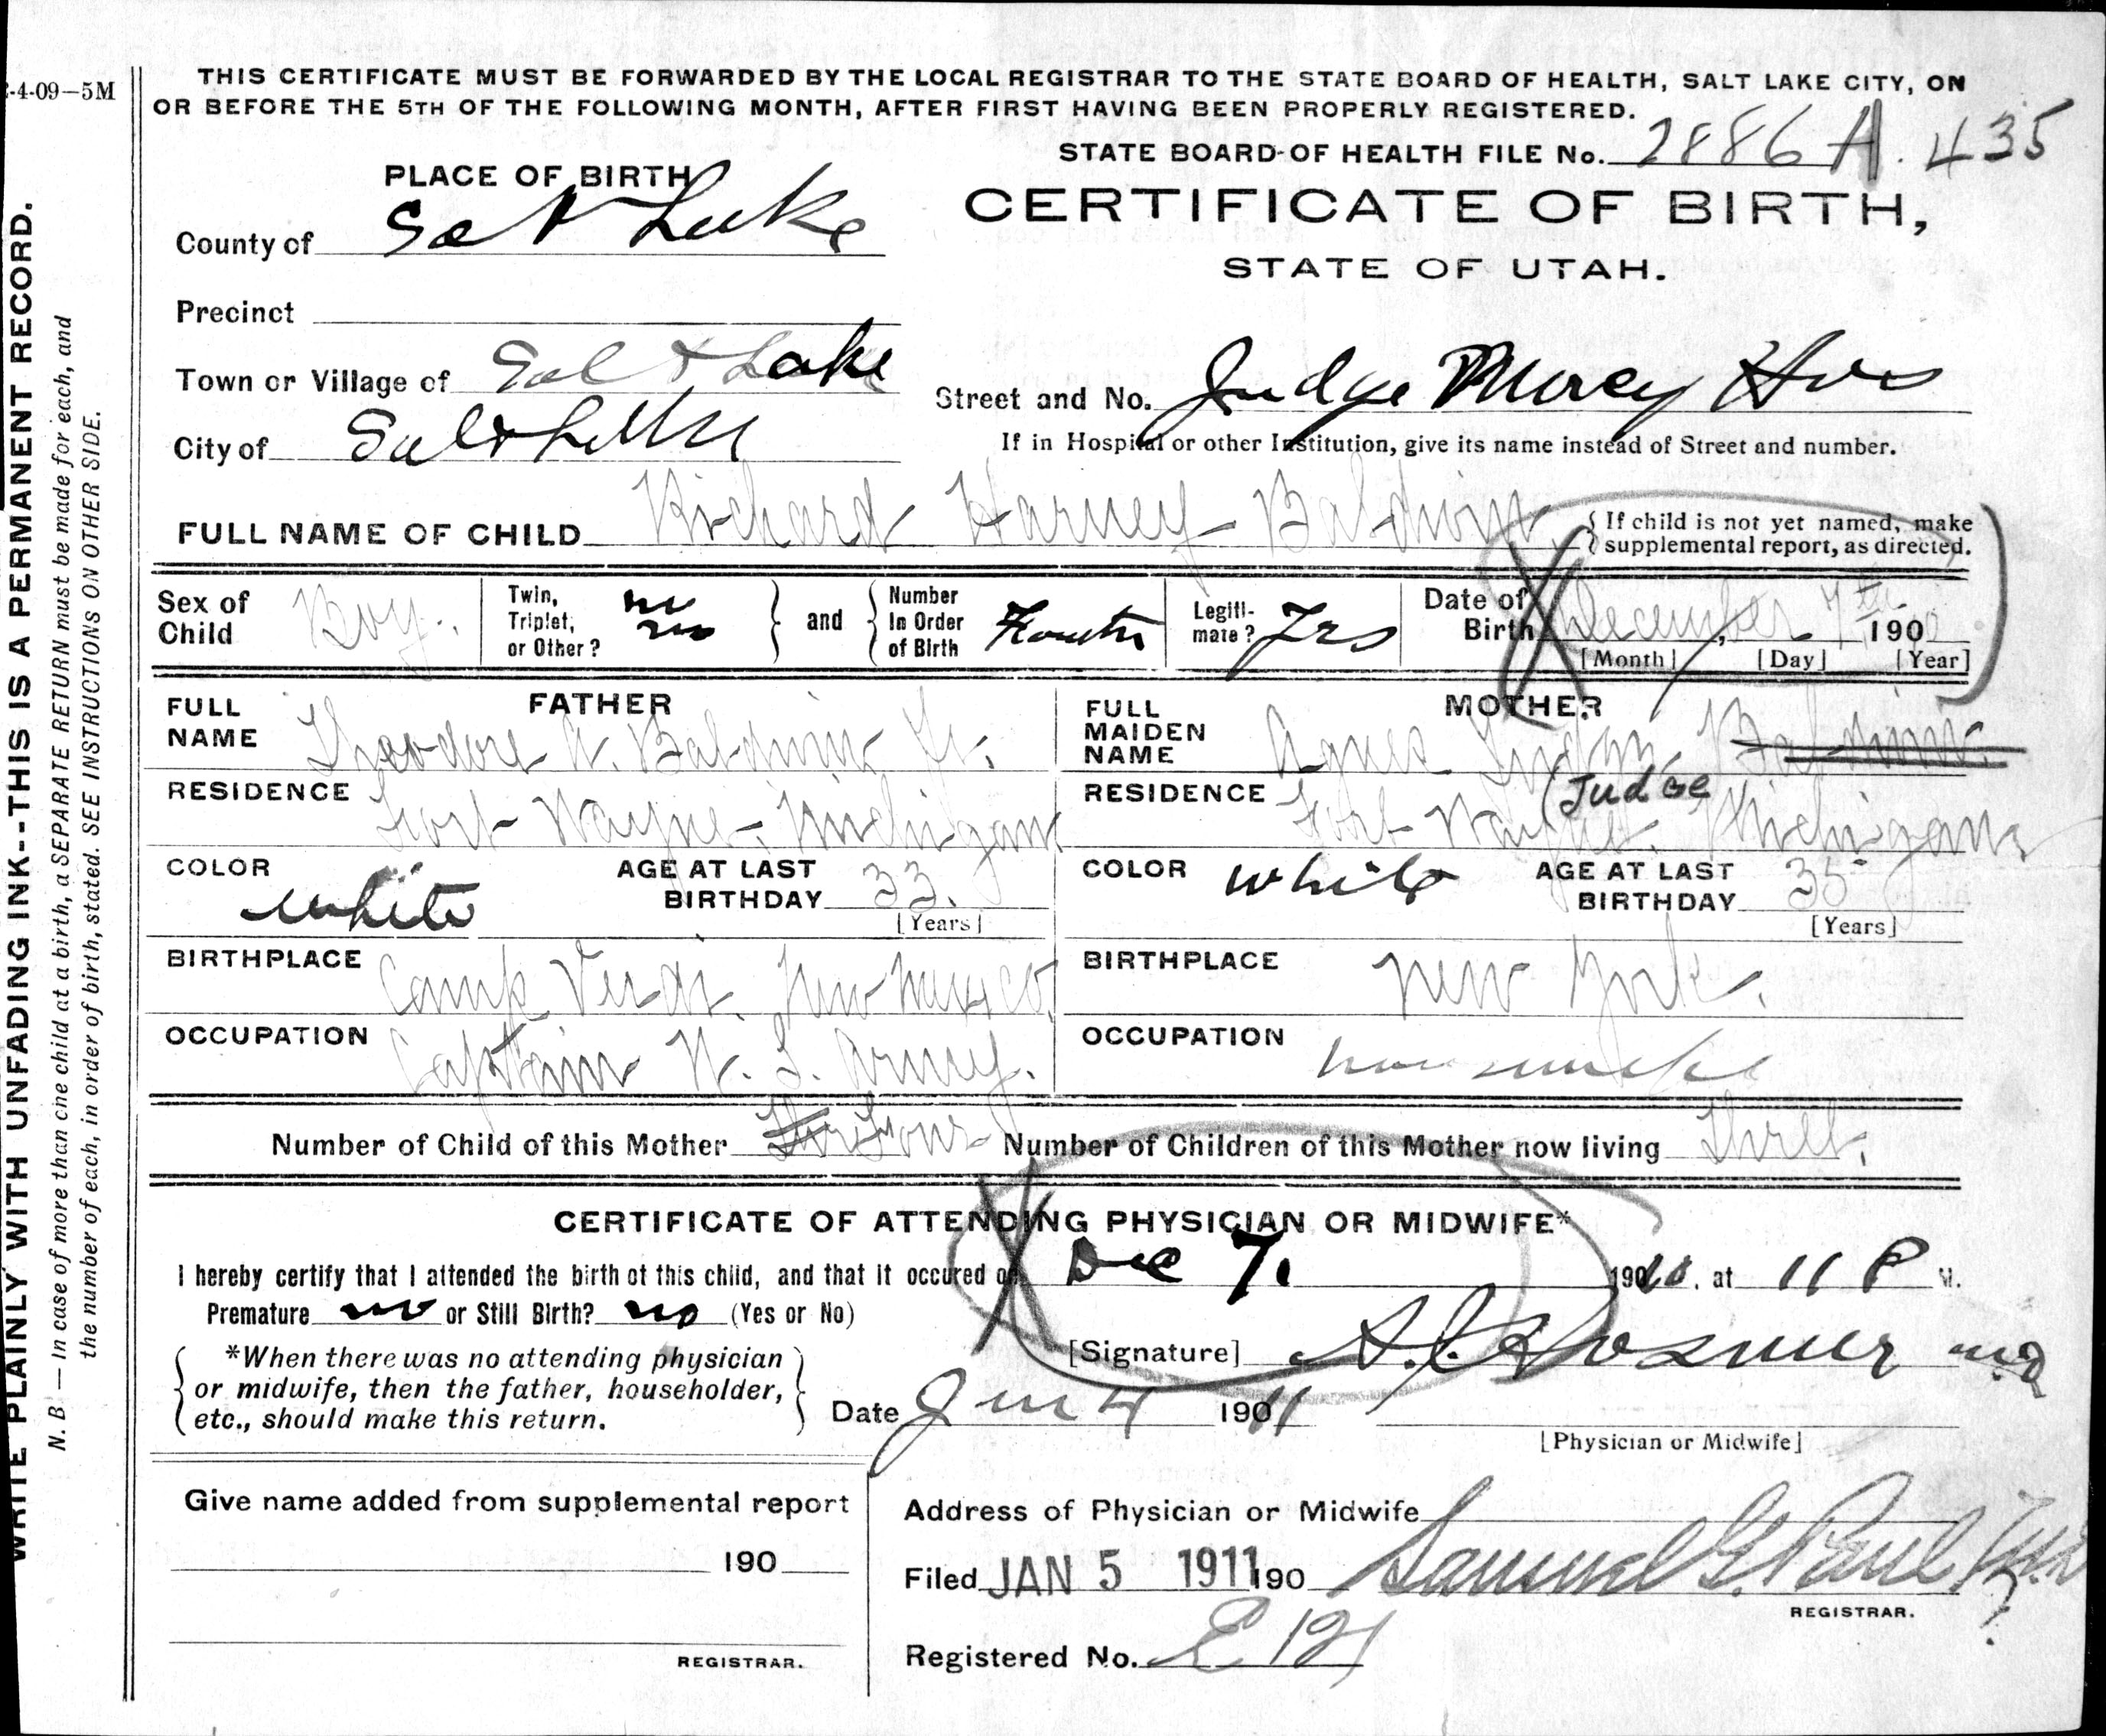 2-4-09—5M
THIS CERTIFICATE MUST BE FORWARDED BY THE LOCAL REGISTRAR TO THE STATE BOARD OF HEALTH, SALT LAKE CITY, ON
OR BEFORE THE 5TH OF THE FOLLOWING MONTH, AFTER FIRST HAVING BEEN PROPERLY REGISTERED.
STATE BOARD OF HEALTH FILE No. 2886 A. 435
PLACE OF BIRTH
CERTIFICATE OF BIRTH,
STATE OF UTAH.
County of Salt Lake
Precinct
Town or Village of Salt Lake
Street and No. Judge Mercy Hos
City of Salt Lake
If in Hospital or other Institution, give its name instead of Street and number.
FULL NAME OF CHILD Richard Harvey Baldwin
{ If child is not yet named, make
supplemental report, as directed.
Sex of Child Boy.
Twin, Triplet, or Other? no no
and
Number In Order of Birth Fourth
Legitimate? Yes
Date of Birth December, 7th 1900
[Month] [Day] [Year]
FATHER
FULL NAME Theodore A. Baldwin Jr.
RESIDENCE Fort Wayne, Michigan
COLOR white
AGE AT LAST BIRTHDAY 33.
[Years]
BIRTHPLACE Camp Verdi. New Mexico
OCCUPATION Captain U. S. Army.
MOTHER
FULL MAIDEN NAME Agnes Baldwin.
(Judge
RESIDENCE Fort Wayne, Michigan
COLOR white
AGE AT LAST BIRTHDAY 35
[Years]
BIRTHPLACE New York.
OCCUPATION housewife
Number of Child of this Mother Four
Number of Children of this Mother now living Three.
CERTIFICATE OF ATTENDING PHYSICIAN OR MIDWIFE*
I hereby certify that I attended the birth of this child, and that it occured on Dec 7. 1910. at 11 P M.
Premature no or Still Birth? no (Yes or No)
*When there was no attending physician
or midwife, then the father, householder,
etc., should make this return.
[Signature] A. J. Hosmer MD
Date Jan 4 190 11
[Physician or Midwife]
Give name added from supplemental report
190
REGISTRAR.
Address of Physician or Midwife
Filed JAN 5 1911 190 Samuel G. Paul
REGISTRAR.
Registered No. E 121
WRITE PLAINLY WITH UNFADING INK--THIS IS A PERMANENT RECORD.
N. B — In case of more than one child at a birth, a SEPARATE RETURN must be made for each, and
the number of each, in order of birth, stated. SEE INSTRUCTIONS ON OTHER SIDE.